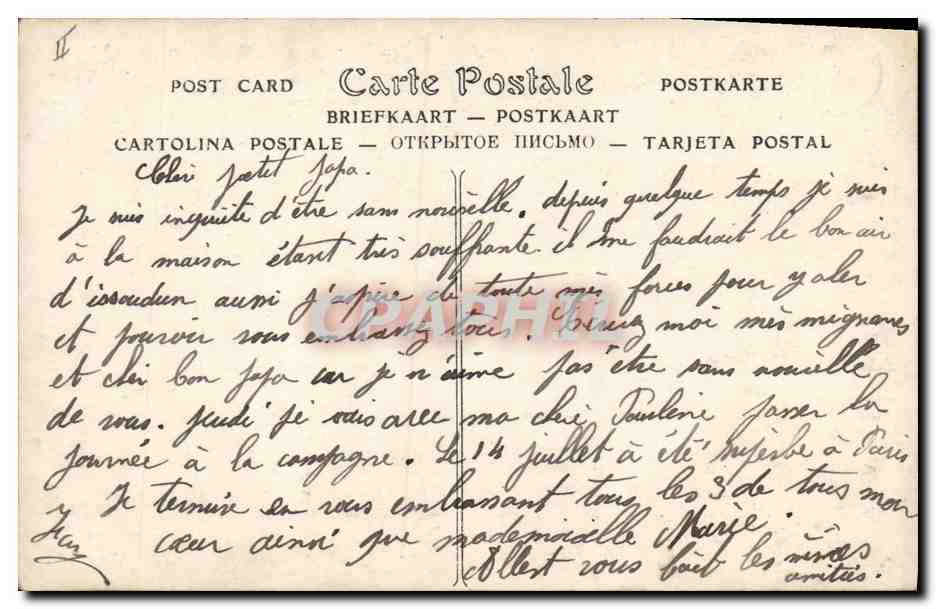 II
POST CARD Carte Postale POSTKARTE
BRIEFKAART — POSTKAART
CARTOLINA POSTALE — ОТКРЫТОЕ ПИСЬМО — TARJETA POSTAL
Cher petit papa.
Je suis inquiète d'être sans nouvelle. depuis quelque temps je suis
à la maison étant très souffrante il me faudrait le bon air
d'issoudun aussi j'aspire de toute mes forces pour y aler
et pouvoir vous embrassez tous. Ecrivez moi mes mignones
et cher bon papa car je n'aime pas être sans nouvelle
de vous. jeudi je vais avec ma cheré Pauline passer la
journée à la campagne. Le 14 juillet à été superbe à Paris
Je termine en vous embrassant tous les 3 de tous mon
cœur ainsi que mademoiselle Marie.
Albert vous fait les
amitiés.
CPAPHIL